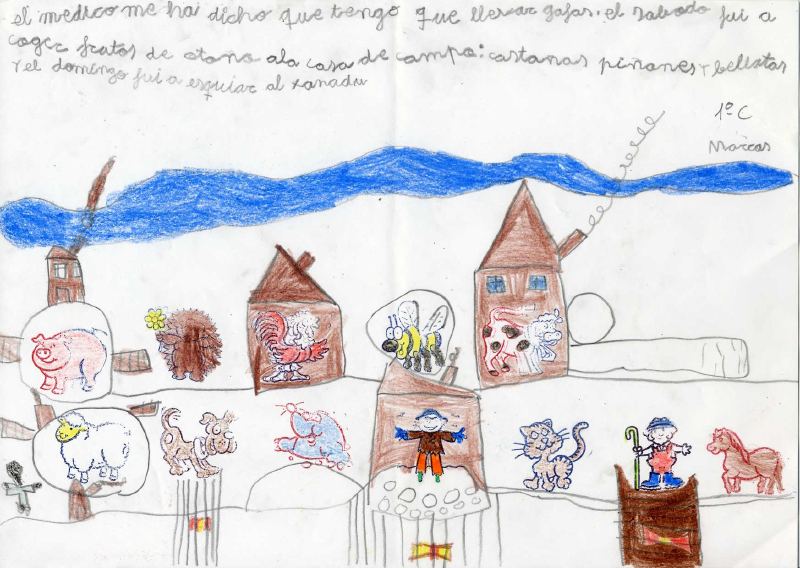 el medico me ha dicho que tengo que llevar gafas. el sabado fui a
coger frutos de otoño ala casa de campo: castanas piñones y bellotas
y el domingo fui a esquiar al xanadu
1º C
Marcos